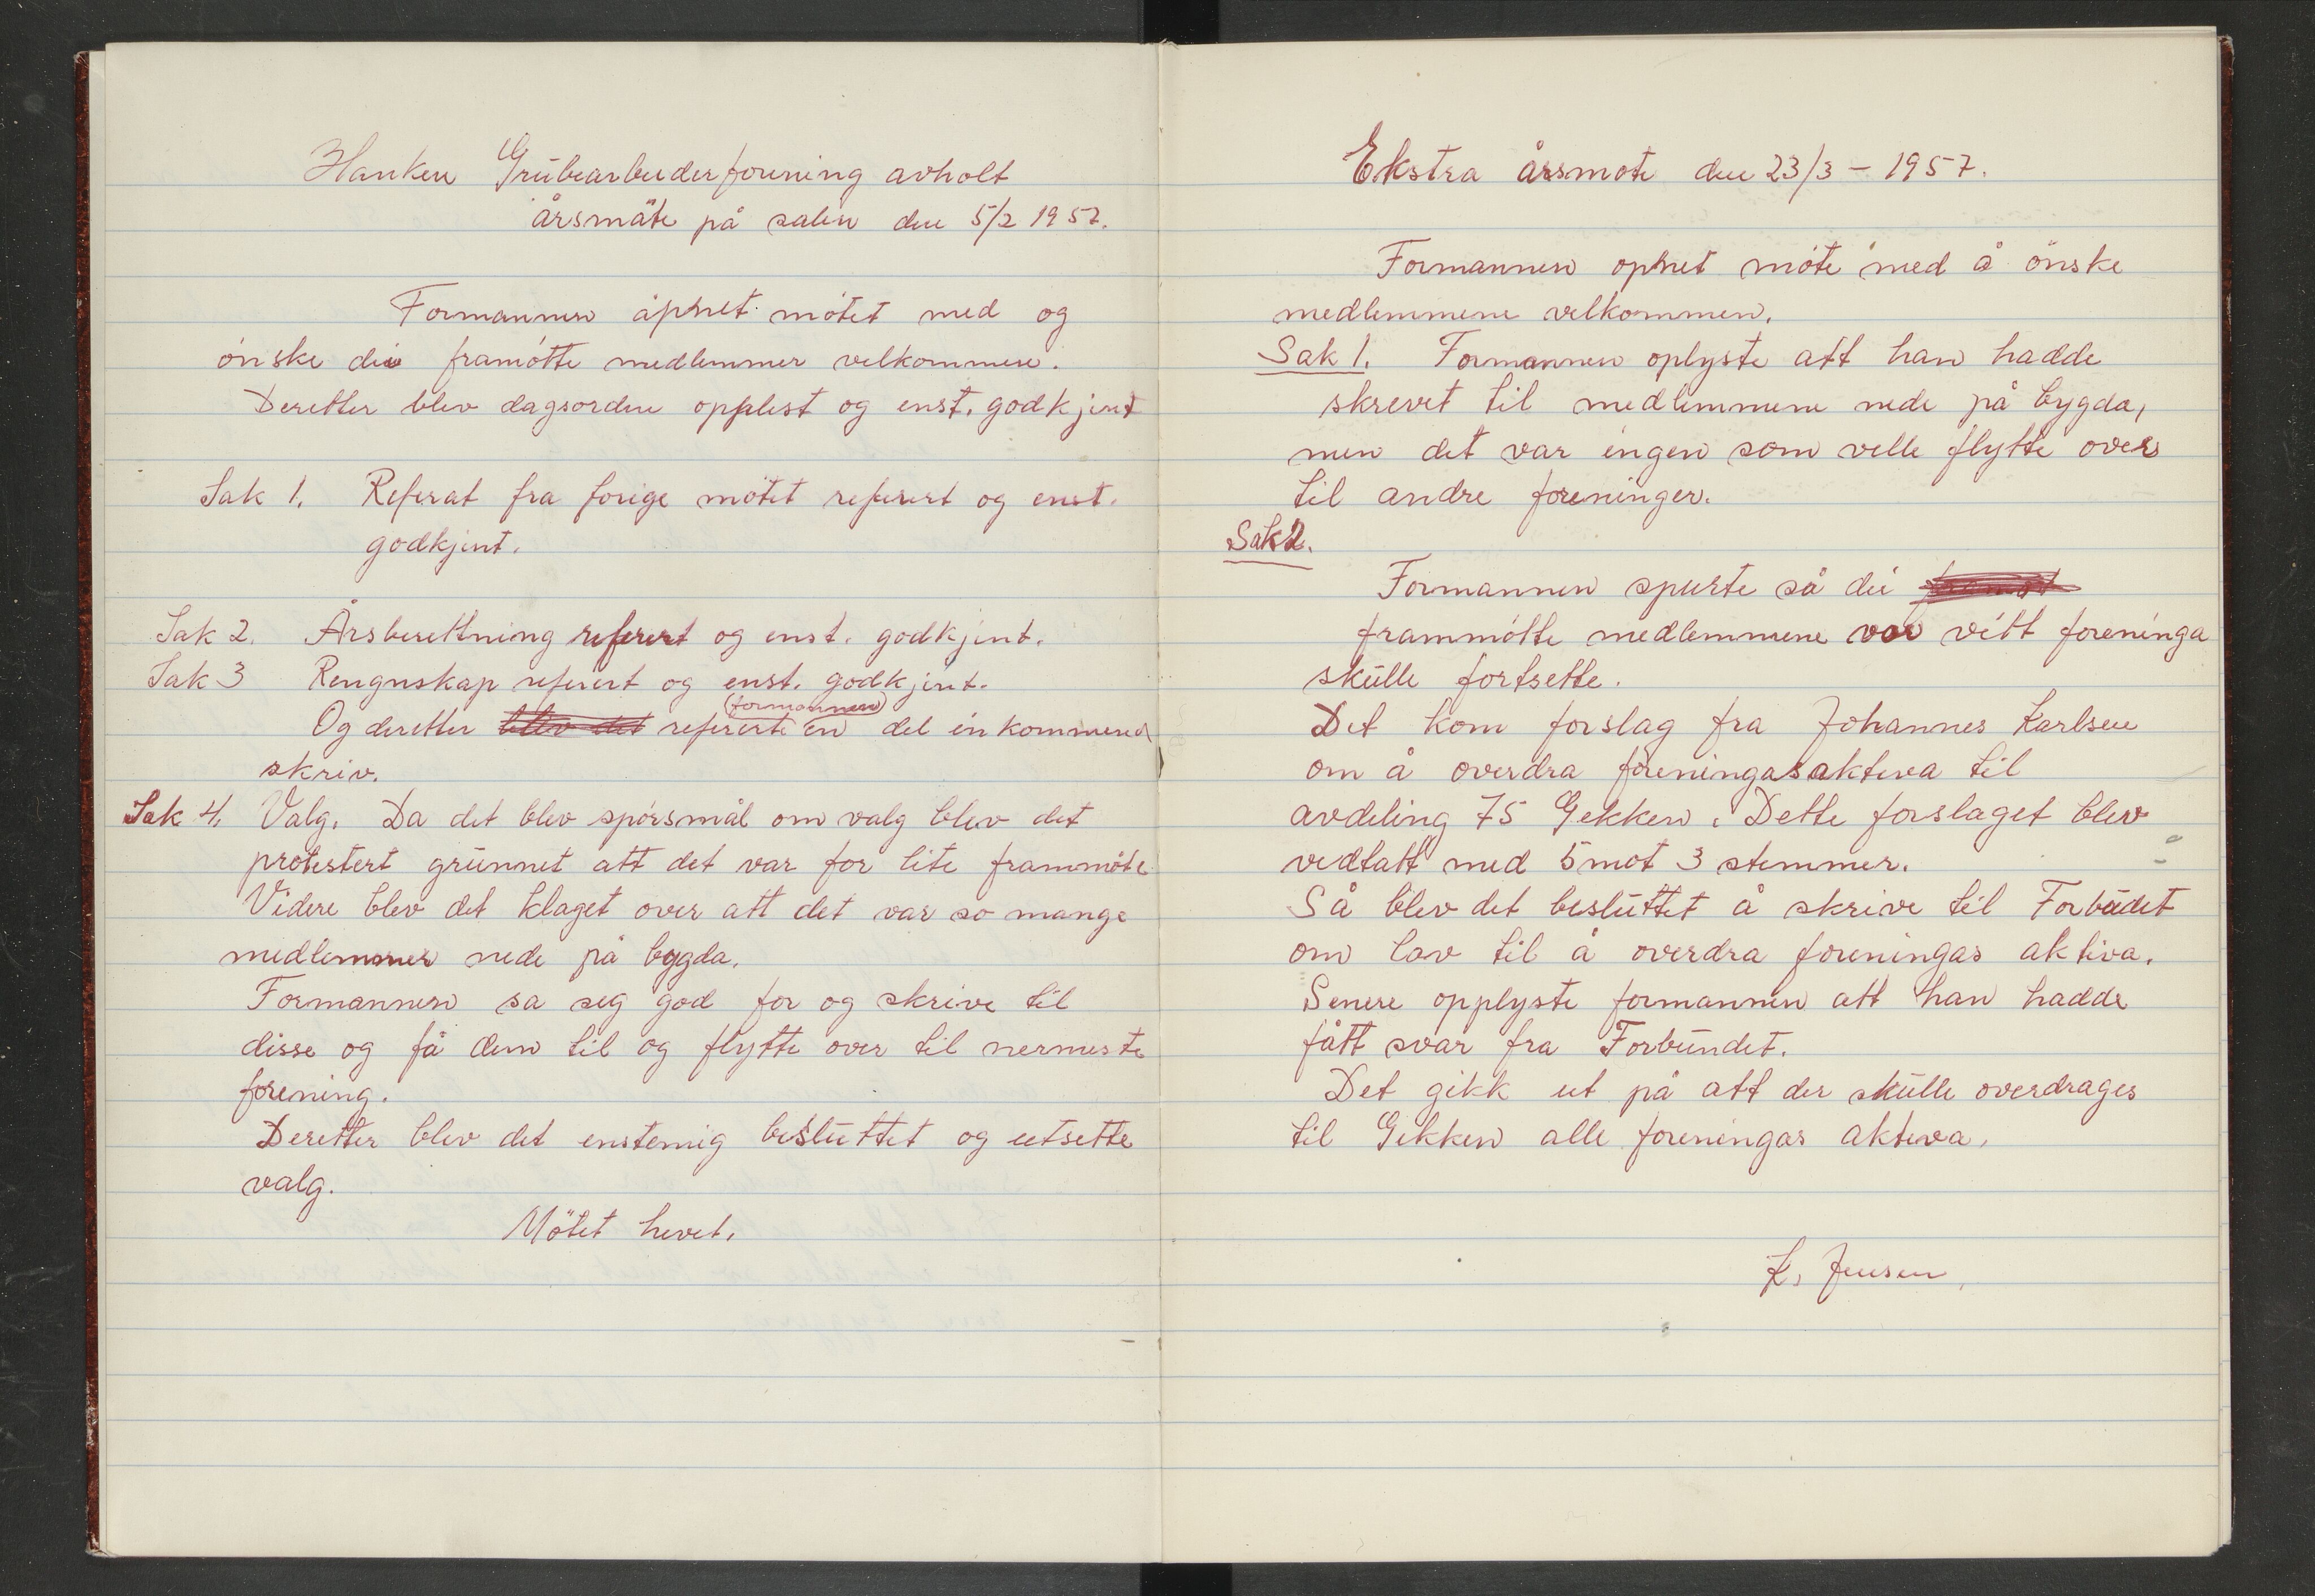 Hanken Grubearbeiderforening avholt
årsmöte på salen den 5/2 1957.
Formannen åpnet mötet med og
önske die framötte medlemmer velkommen.
Deretter blev dagsorden opplest og enst. godkjent
Sak 1. Referat fra forige mötet referert og enst.
godkjent.
Sak 2. Årsberettning referert og enst. godkjent.
Sak 3 Rengnskap referert og enst. godkjent.
(formannen)
Og deretter blev det referert en del innkommend
skriv.
Sak 4. Valg. Da det blev spörsmål om valg blev det
protestert grunnet att det var for lite frammöte
Videre blev det klaget over att det var so mange
medlemmer nede på bygda.
Formannen sa seg god for og skrive til
disse og få dem til og flytte over til nermeste
forening.
Deretter blev det enstemig besluttet og utsette
valg.
Mötet hevet.
Ekstra årsmöte den 23/3 - 1957.
Formannen opnet möte med å önske
medlemmene velkommen.
Sak 1. Formannen oplyste att han hadde
skrevet til medlemmene nede på bygda,
men det var ingen som velle flytte over
til andre foreninger.
Sak 2.
Formannen spurte så dei
frammötte medlemmene var vitt foreninga
skulle fortsette.
Det kom forslag fra Johannes Karlsen
om å overdra foreningas aktiva til
avdeling 75 Gekken. Dette forslaget blev
vedtatt med 5 mot 3 stemmer.
Så blev det besluttet å skrive til Forbudet
om lov til å overdra foreningas aktiva.
Senere opplyste formannen att han hadde
fått svar fra Forbundet.
Det gikk ut på att der skulle overdrages
til Gikken alle foreningas aktiva.
K. Jensen.